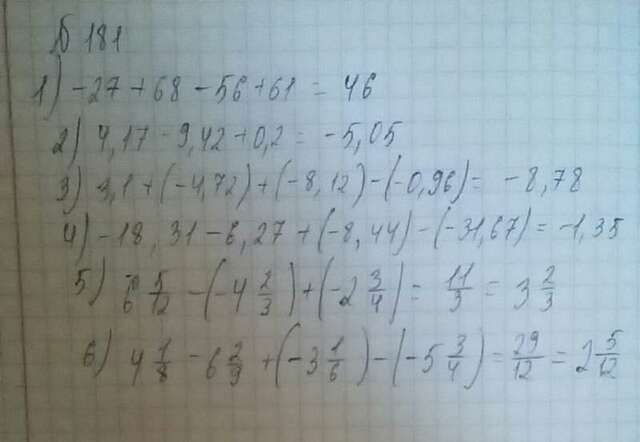 № 181
1) -27 + 68 - 56 + 61 = 46
2) 4,17 - 9,42 + 0,2 = -5,05
3) 3,1 + (-4,72) + (-8,12) - (-0,96) = -8,78
4) -18,31 - 6,27 + (-8,44) - (-31,67) = -1,35
5) 6 5/12 - (-4 2/3) + (-2 3/4) = 11/3 = 3 2/3
6) 4 1/8 - 6 2/9 + (-3 1/6) - (-5 3/4) = 29/12 = 2 5/12